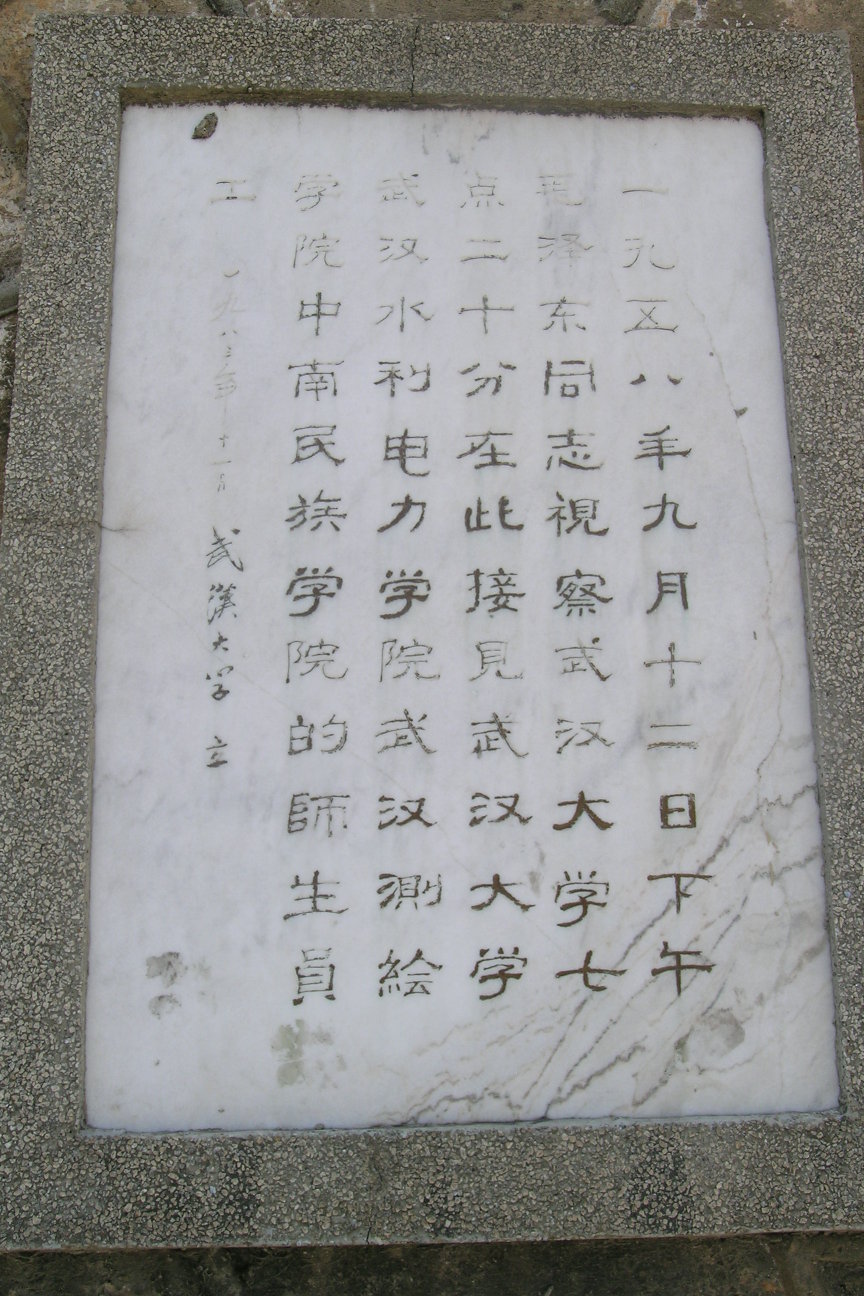 一九五八年九月十二日下午
毛泽东同志視察武汉大学七
点二十分在此接見武汉大学
武汉水利电力学院武汉測絵
学院中南民族学院的師生員
工
一九八三年十一月 武漢大学立